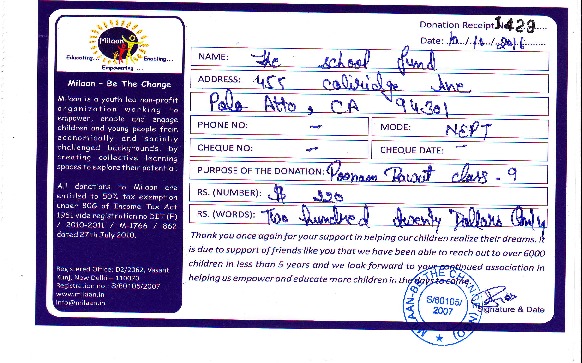 Milaan
Educating... Enacting...
Empowering...
Milaan – Be The Change
Milaan is a youth led non-profit
organization working to
empower, enable and engage
children and young people from
economically and socially
challenged backgrounds, by
creating collective learning
spaces to explore their potential.
All donations to Milaan are
entitled to 50% tax exemption
under 80G of Income Tax Act
1961 vide registration no DIT (E)
/ 2010-2011 / M-1766 / 862
dated 27th July 2010.
Registered Office: D2/2362, Vasant
Kunj, New Delhi – 110070
Registration no : S/60105/2007
www.milaan.in
info@milaan.in
Donation Receipt No 1429
Date: /2016
NAME: The school fund
ADDRESS: 455 coliridge Ane
Palo Atto, CA 94301
PHONE NO: – MODE: NEFT
CHEQUE NO: – CHEQUE DATE: –
PURPOSE OF THE DONATION: Poonam Rawat class - 9
RS. (NUMBER): $ 220
RS. (WORDS): Two hundred twenty Dollars Only
Thank you once again for your support in helping our children realize their dreams. It
is due to support of friends like you that we have been able to reach out to over 6000
children in less than 5 years and we look forward to your continued association in
helping us empower and educate more children in the days to come.
MILAAN-BE THE CHANGE (NGO)
S/60105/
2007
Signature & Date